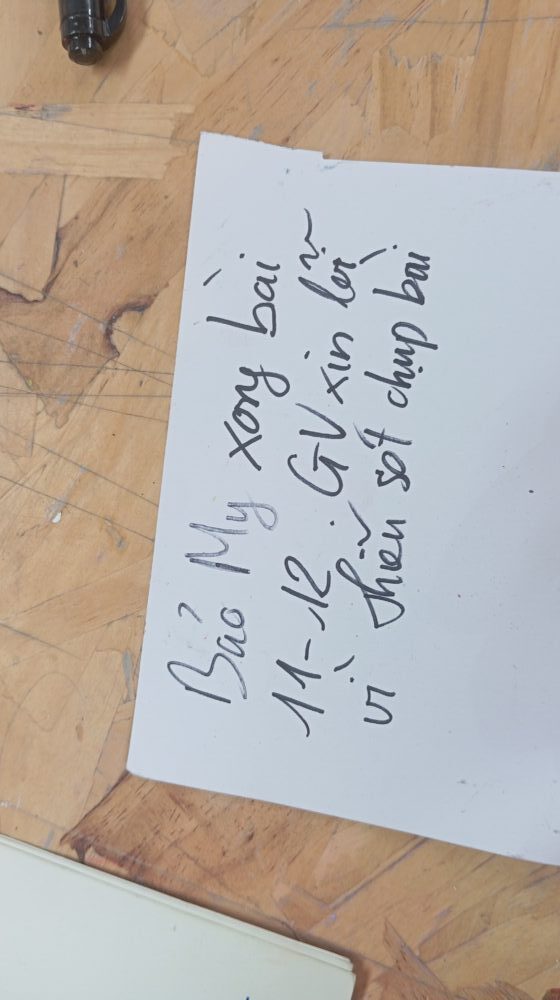 Bảo My xong bài
11-12. GV xin lỗi
vì thiếu sót chụp bài